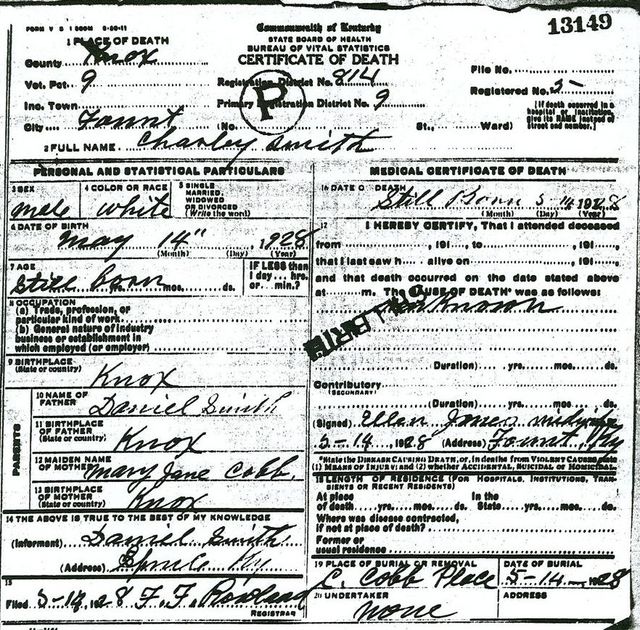 FORM V S 1 500M 5-30-11
Commonwealth of Kentucky
13149
1 PLACE OF DEATH
STATE BOARD OF HEALTH
BUREAU OF VITAL STATISTICS
CERTIFICATE OF DEATH
County Knox
File No.
Vot. Pct. 9
Registration District No. 814
Registered No. 5-
Inc. Town
Primary Registration District No. 9
P
City Fount (No. St., Ward)
[If death occurred in a hospital or institution, give its NAME instead of street and number.]
2 FULL NAME Charley Smith
PERSONAL AND STATISTICAL PARTICULARS
3 SEX male
4 COLOR OR RACE white
5 SINGLE MARRIED, WIDOWED OR DIVORCED (Write the word)
6 DATE OF BIRTH
May 14" 1928
(Month) (Day) (Year)
7 AGE
Still born mos. ds.
IF LESS than 1 day... hrs. or... min.?
8 OCCUPATION
(a) Trade, profession, or
particular kind of work
(b) General nature of industry
business or establishment in
which employed (or employer)
9 BIRTHPLACE
(State or country)
Knox
PARENTS
10 NAME OF FATHER Daniel Smith
11 BIRTHPLACE OF FATHER (State or country) Knox
12 MAIDEN NAME OF MOTHER Mary Jane Cobb.
13 BIRTHPLACE OF MOTHER (State or country) Knox
14 THE ABOVE IS TRUE TO THE BEST OF MY KNOWLEDGE
(Informent) Daniel Smith
(Address) Ky
15
Filed 5-14, 1928 F. F. Rowland
REGISTRAR
MEDICAL CERTIFICATE OF DEATH
16 DATE O DEATH
Still Born 5-14 1928
(Month) (Day) (Year)
17 I HEREBY CERTIFY, That I attended deceased
from , 191 , to , 191 ,
that I last saw h alive on , 191 ,
and that death occurred on the date stated above
at m. The CAUSE OF DEATH* was as follows:
Unknown
BIRTH
(Duration) yrs. mos. ds.
Contributory
(SECONDARY)
(Duration) yrs. mos. ds.
(Signed) Ellen Jones midwife
5-14, 1928 (Address) Fount, Ky
*State the DISEASE CAUSING DEATH, or, in deaths from VIOLENT CAUSES, state
(1) MEANS OF INJURY; and (2) whether ACCIDENTAL, SUICIDAL or HOMICIDAL.
18 LENGTH OF RESIDENCE (FOR HOSPITALS, INSTITUTIONS, TRANSIENTS OR RECENT RESIDENTS)
At place In the
of death yrs. mos. ds. State yrs. mos. ds.
Where was disease contracted,
if not at place of death?
Former or
usual residence
19 PLACE OF BURIAL OR REMOVAL
C. Cobb Place
DATE OF BURIAL
5-14- 1928
20 UNDERTAKER
none
ADDRESS